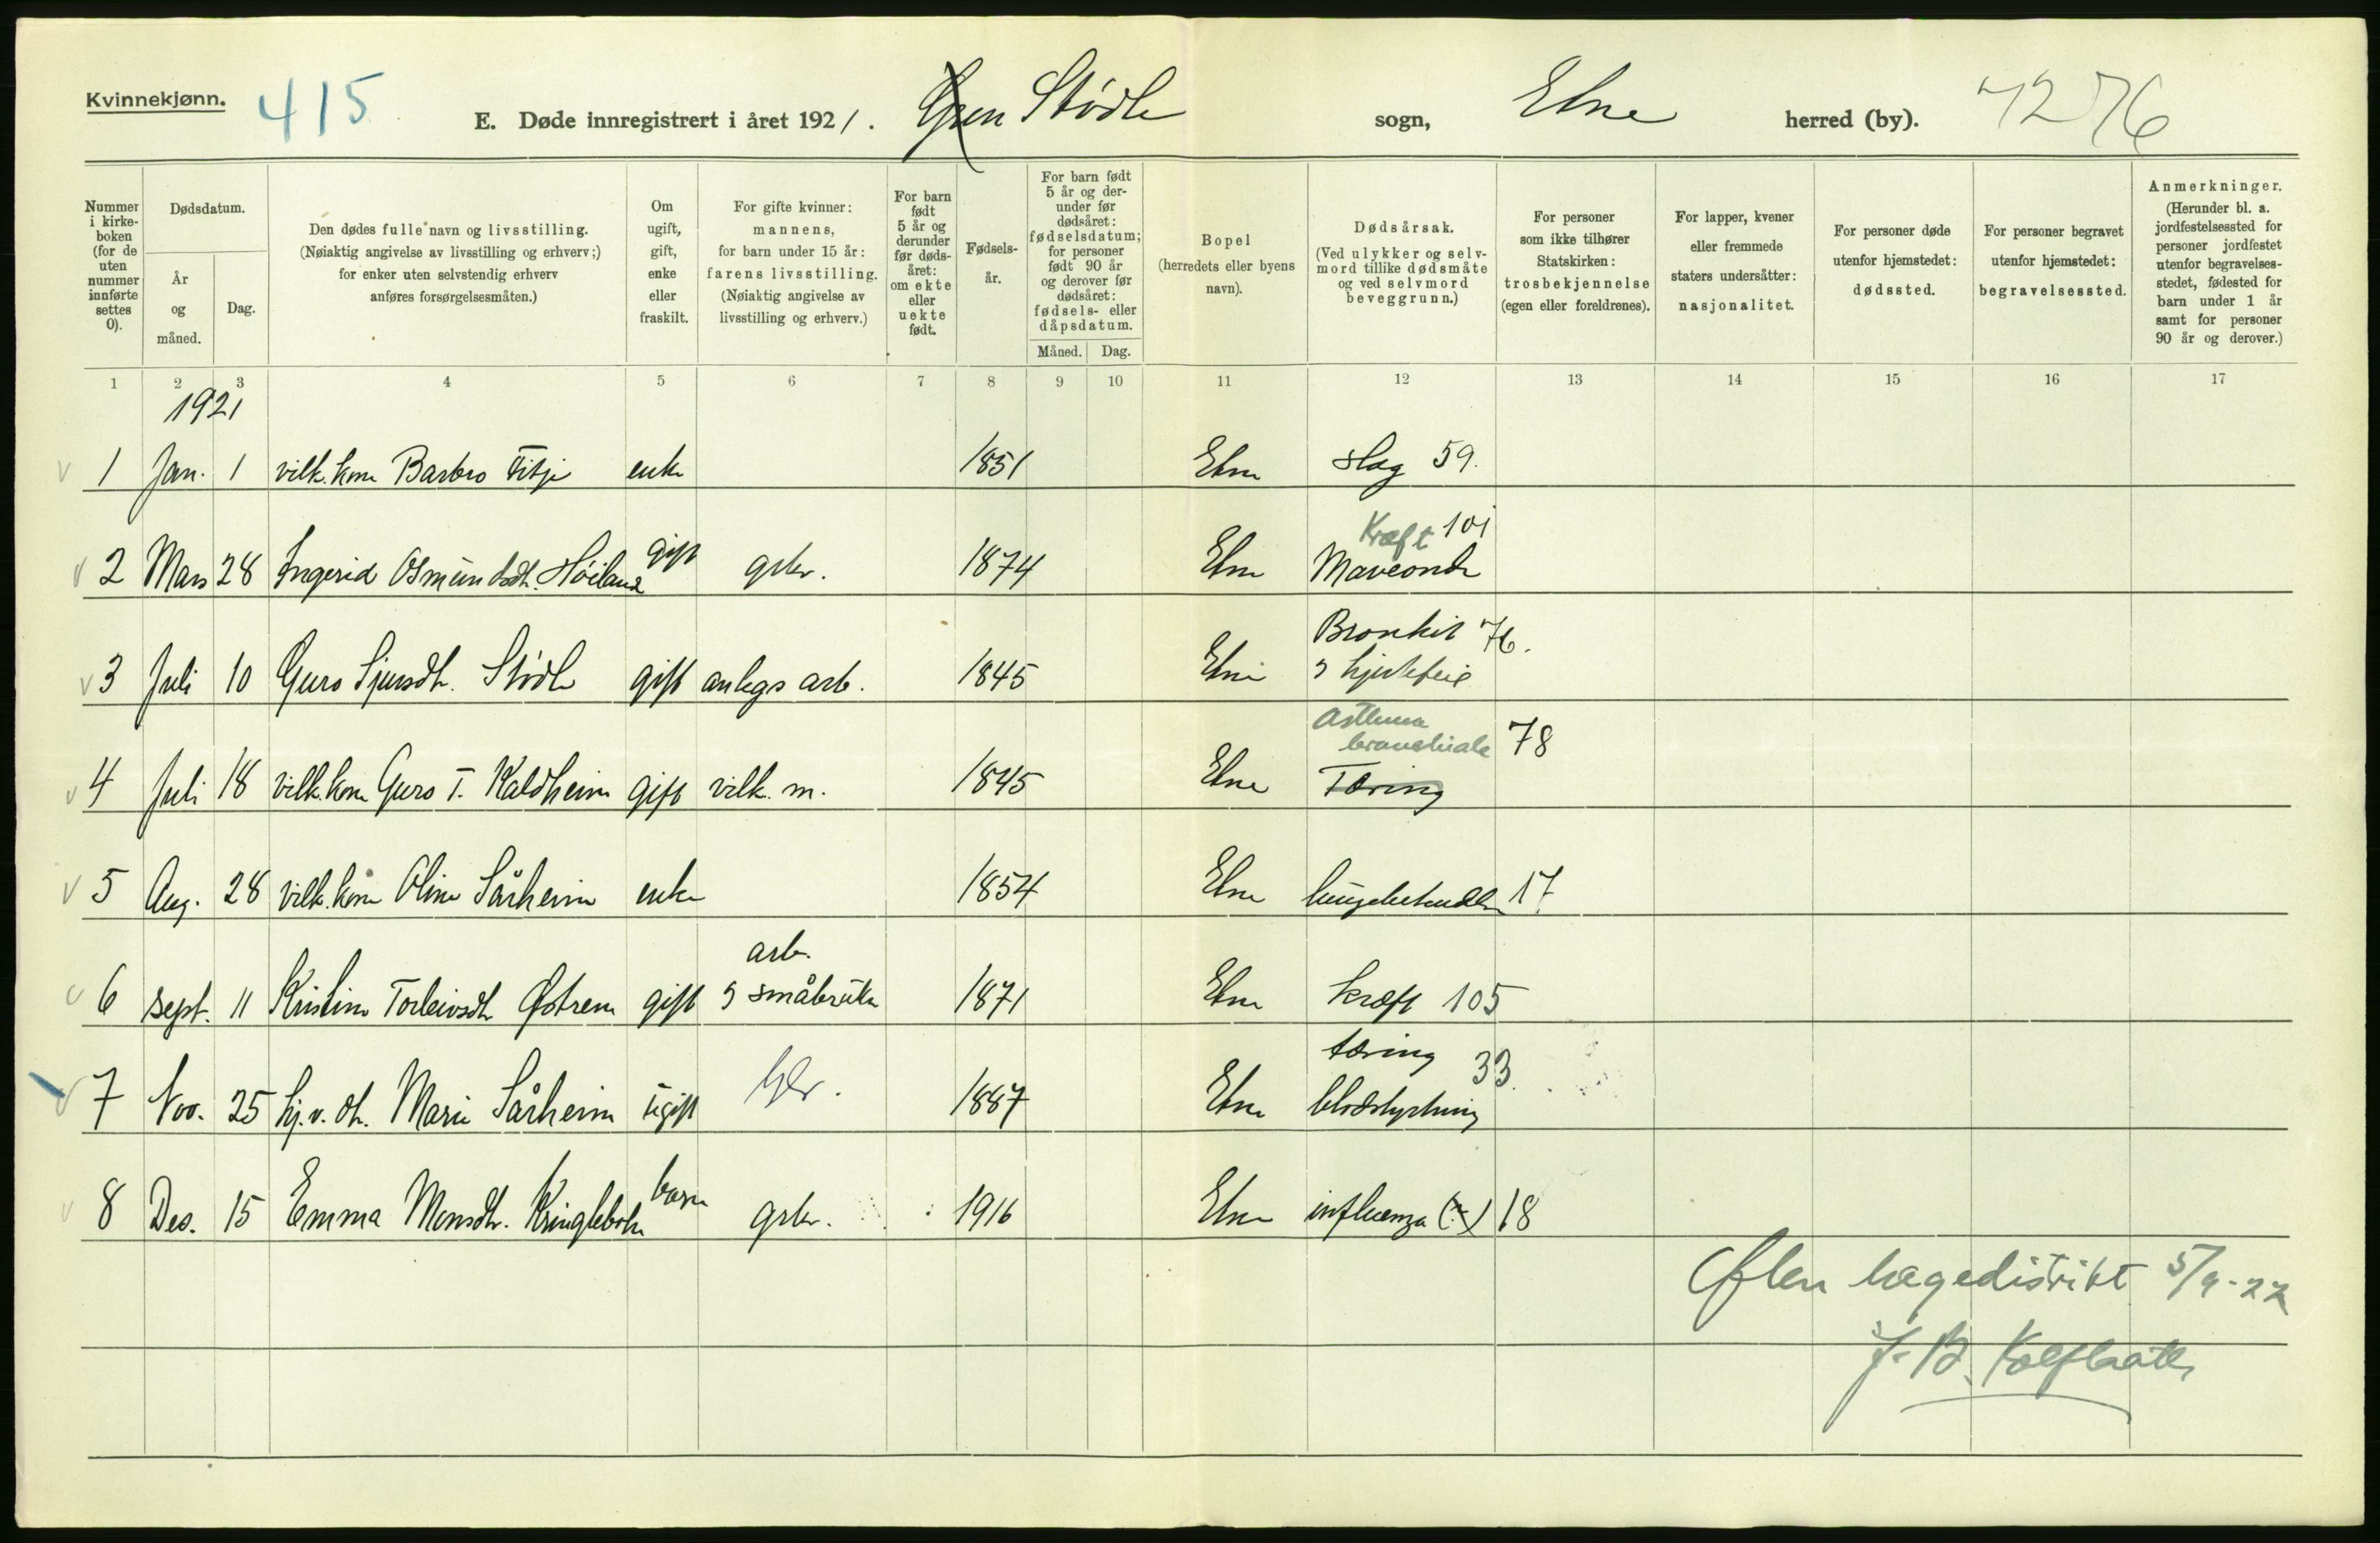 Kvinnekjønn.
415
E. Døde innregistrert i året 1921.
Støle sogn,
Etne herred (by).
7276
Nummer i kirkeboken (for de uten nummer innførte settes 0).
Dødsdatum.
År og måned.
Dag.
Den dødes fulle navn og livsstilling.
(Nøiaktig angivelse av livsstilling og erhverv;)
for enker uten selvstendig erhverv
anføres forsørgelsesmåten.)
Om ugift, gift, enke eller fraskilt.
For gifte kvinner:
mannens,
for barn under 15 år:
farens livsstilling.
(Nøiaktig angivelse av
livsstilling og erhverv.)
For barn født 5 år og derunder før dødsåret: om ekte eller uekte født.
Fødselsår.
For barn født 5 år og derunder før dødsåret: fødselsdatum; for personer født 90 år og derover før dødsåret: fødsels- eller dåpsdatum.
Måned.
Dag.
Bopel
(herredets eller byens
navn).
Dødsårsak.
(Ved ulykker og selvmord tillike dødsmåte og ved selvmord beveggrunn.)
For personer
som ikke tilhører
Statskirken:
trosbekjennelse
(egen eller foreldrenes).
For lapper, kvener
eller fremmede
staters undersåtter:
nasjonalitet.
For personer døde
utenfor hjemstedet:
dødssted.
For personer begravet
utenfor hjemstedet:
begravelsessted.
Anmerkninger.
(Herunder bl. a. jordfestelsessted for personer jordfestet utenfor begravelsesstedet, fødested for barn under 1 år samt for personer 90 år og derover.)
1 2 3 4 5 6 7 8 9 10 11 12 13 14 15 16 17
1921
1 Jan. 1 vilk.kone Barbro Fitje enke 1851 Etne slag 59.
2 Mars 28 Ingerid Osmundsdt. Høiland gift gbr. 1874 Etne Kræft 101
Maveonde
3 Juli 10 Guro Sjursdt. Støle gift anlegs arb. 1845 Etne Bronkit 76.
og hjertefeil
4 Juli 18 vilk.kone Guro T. Kaldheim gift vilk. m. 1845 Etne Asthma
bronchiale 78
Tæring
5 Aug. 28 vilk.kone Oline Sårheim enke 1854 Etne 17
6 Sept. 11 Kristine Torleivsdt. Østrem gift arb.
og småbruker 1871 Etne kræft 105
7 Nov. 25 hj.v. dt. Marie Sårheim ugift 1887 Etne tæring 33
blodstyrtning
8 Des. 15 Emma Monsdt. Kringlebotn barn gbr. 1916 Etne influenza (?) 18
Ølen lægedistrikt 5/9-22